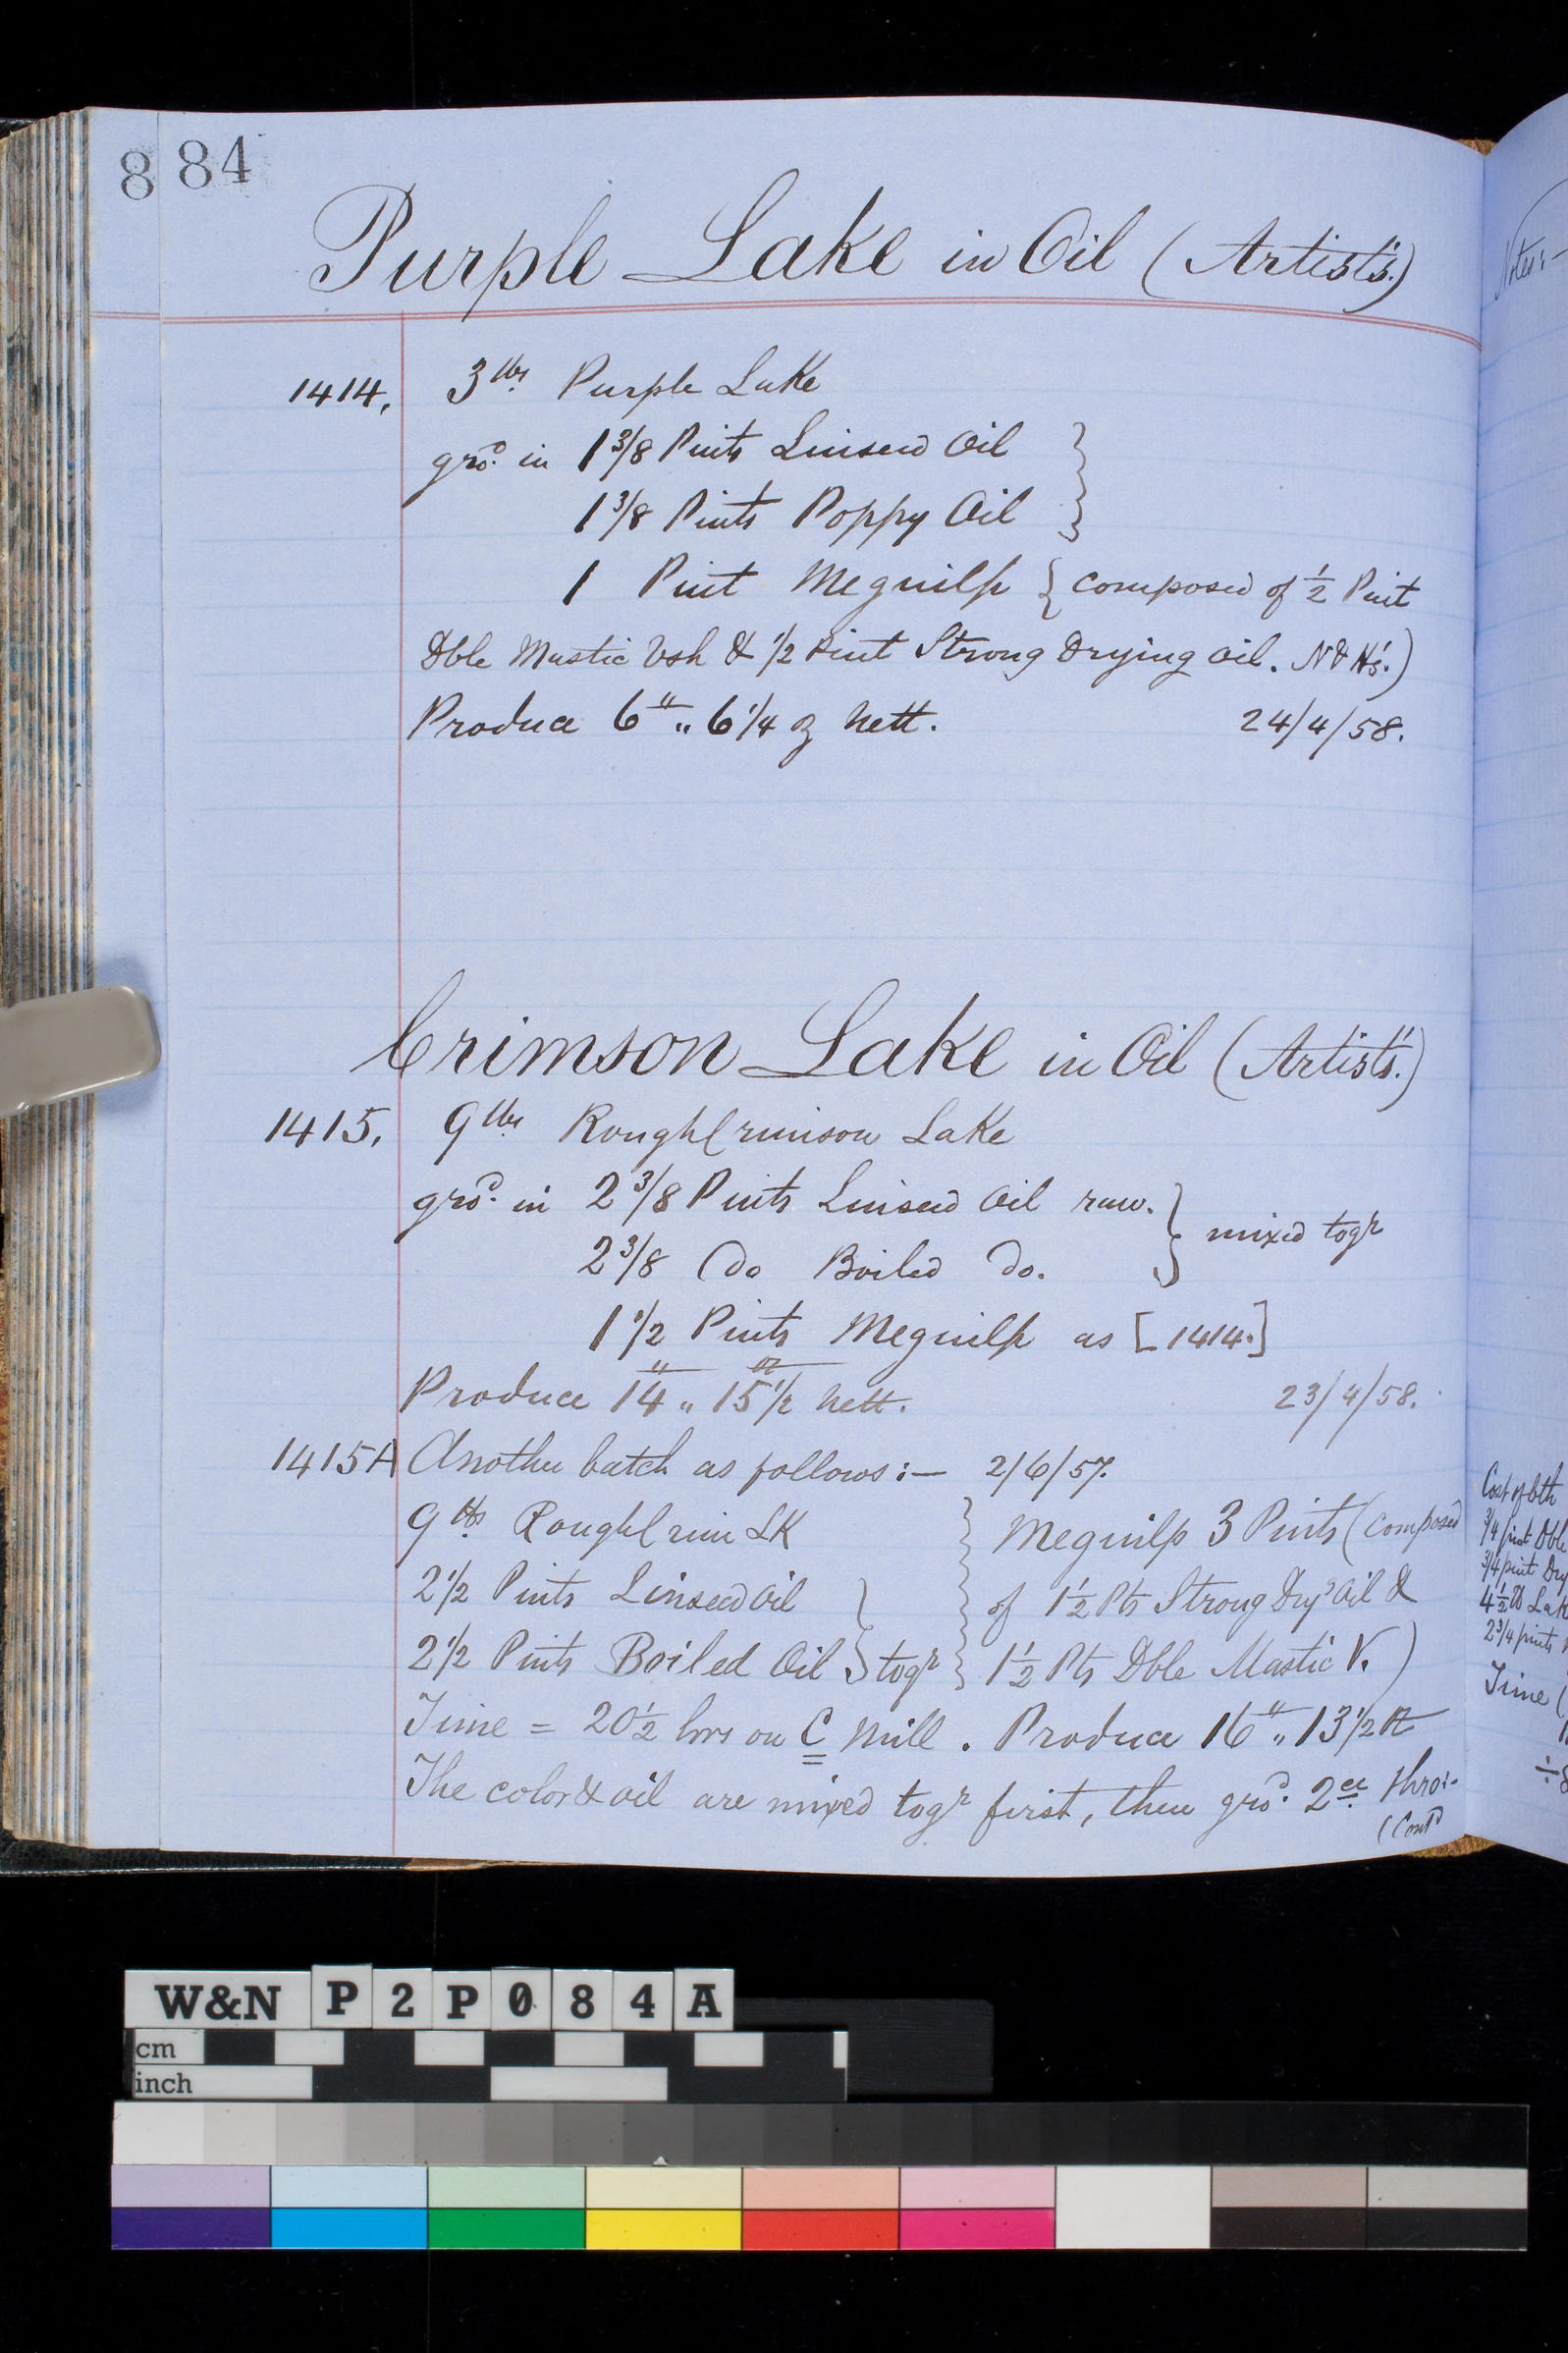 8 84
Purple Lake in Oil (Artists'.)
1414. 3 lbs. Purple Lake
gro.d in 1 3/8 Pints Linseed Oil }
1 3/8 Pints Poppy Oil }
1 Pint Meguilp { composed of 1/2 Pint
Dble Mastic Vsh & 1/2 Pint Strong Drying Oil. N & H's.)
Produce 6 lb „ 6 1/4 oz nett. 24/4/58.
Crimson Lake in Oil (Artists'.)
1415. 9 lbs. Rough Crimson Lake
gro.d in 2 3/8 Pints Linseed Oil raw. } mixed togr
2 3/8 Do Boiled Do. }
1 1/2 Pints Meguilp as [1414.]
Produce 14 lb „ 15 1/2 oz nett. 23/4/58.
1415A Another batch as follows:— 2/6/57.
9 lbs. Rough Crim LK } Meguilp 3 Pints (composed
2 1/2 Pints Linseed Oil } of 1 1/2 Pts Strong Dryg Oil &
2 1/2 Pints Boiled Oil } togr } 1 1/2 Pts Dble Mastic V.)
Time = 20 1/2 hrs on C Mill. Produce 16 lb „ 13 1/2
The color & oil are mixed togr first, then gro.d 2ce thro:-
(Contd
Notes:-
Cost of 6th
3/4 pint Dble
3/4 pint Dry
4 1/2 lb Lak
2 3/4 pints
Time (
W&N P2P084A
cm
inch